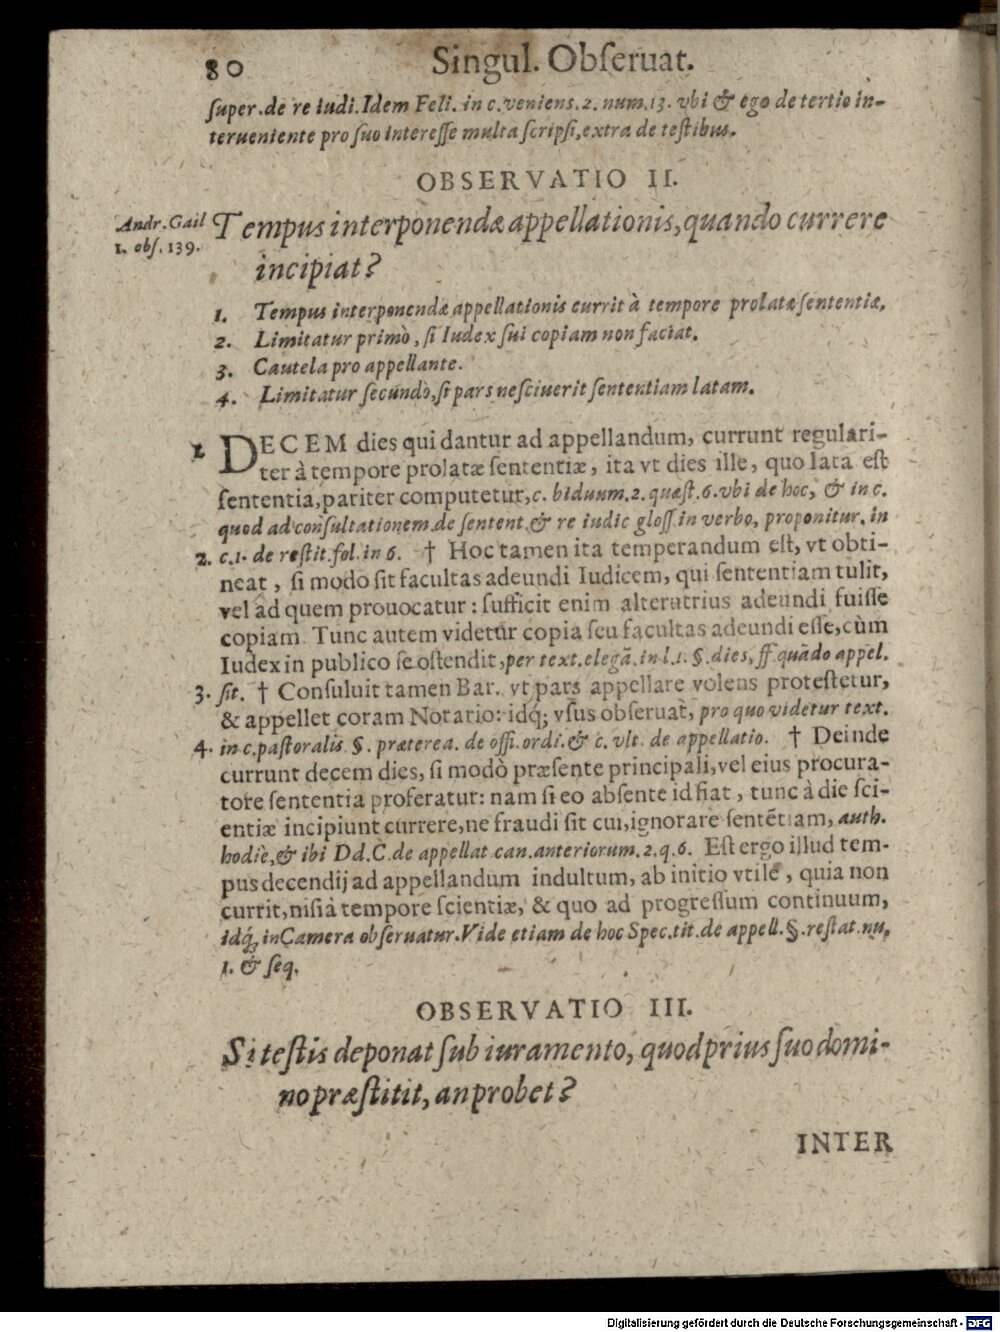 80 Singul. Obſeruat.
ſuper. de re iudi. Idem Feli. in c. veniens. 2. num. 13. vbi & ego de tertio in-
terueniente pro ſuo intereſſe multa ſcripſi, extra de teſtibus.
OBSERVATIO II.
Andr. Gail
1. obſ. 139.
Tempus interponendæ appellationis, quando currere
incipiat?
1. Tempus interponendæ appellationis currit à tempore prolatæ ſententiæ.
2. Limitatur primò, ſi Iudex ſui copiam non faciat.
3. Cautela pro appellante.
4. Limitatur ſecundò, ſi pars neſciuerit ſententiam latam.
1 DECEM dies qui dantur ad appellandum, currunt regulari-
ter à tempore prolatæ ſententiæ, ita vt dies ille, quo lata eſt
ſententia, pariter computetur, c. biduum. 2. quæſt. 6. vbi de hoc, & in c.
quod ad conſultationem. de ſentent. & re iudic gloſſ. in verbo, proponitur. in
2. c. 1. de reſtit. ſol. in 6. † Hoc tamen ita temperandum eſt, vt obti-
neat, ſi modo ſit facultas adeundi Iudicem, qui ſententiam tulit,
vel ad quem prouocatur: ſufficit enim alterutrius adeundi fuiſſe
copiam. Tunc autem videtur copia ſeu facultas adeundi eſſe, cùm
Iudex in publico ſe oſtendit, per text. elegā. in l. 1. §. dies, ff. quādo appel.
3. ſit. † Conſuluit tamen Bar. vt pars appellare volens proteſtetur,
& appellet coram Notario: idq́; vſus obſeruat, pro quo videtur text.
4. in c. paſtoralis §. præterea. de offi. ordi. & c. vlt. de appellatio. † Deinde
currunt decem dies, ſi modò præſente principali, vel eius procura-
tore ſententia proferatur: nam ſi eo abſente id fiat, tunc à die ſci-
entiæ incipiunt currere, ne fraudi ſit cui, ignorare ſentētiam, auth.
hodie, & ibi Dd. C. de appellat. can. anteriorum. 2. q. 6. Eſt ergo illud tem-
pus decendij ad appellandum indultum, ab initio vtile, quia non
currit, niſi à tempore ſcientiæ, & quo ad progreſſum continuum,
idq́; in Camera obſeruatur. Vide etiam de hoc Spec. tit. de appell. §. reſtat. nu.
1. & ſeq.
OBSERVATIO III.
Si teſtis deponat ſub iuramento, quod prius ſuo domi-
no præſtitit, an probet?
INTER
Digitalisierung gefördert durch die Deutsche Forschungsgemeinschaft - DFG